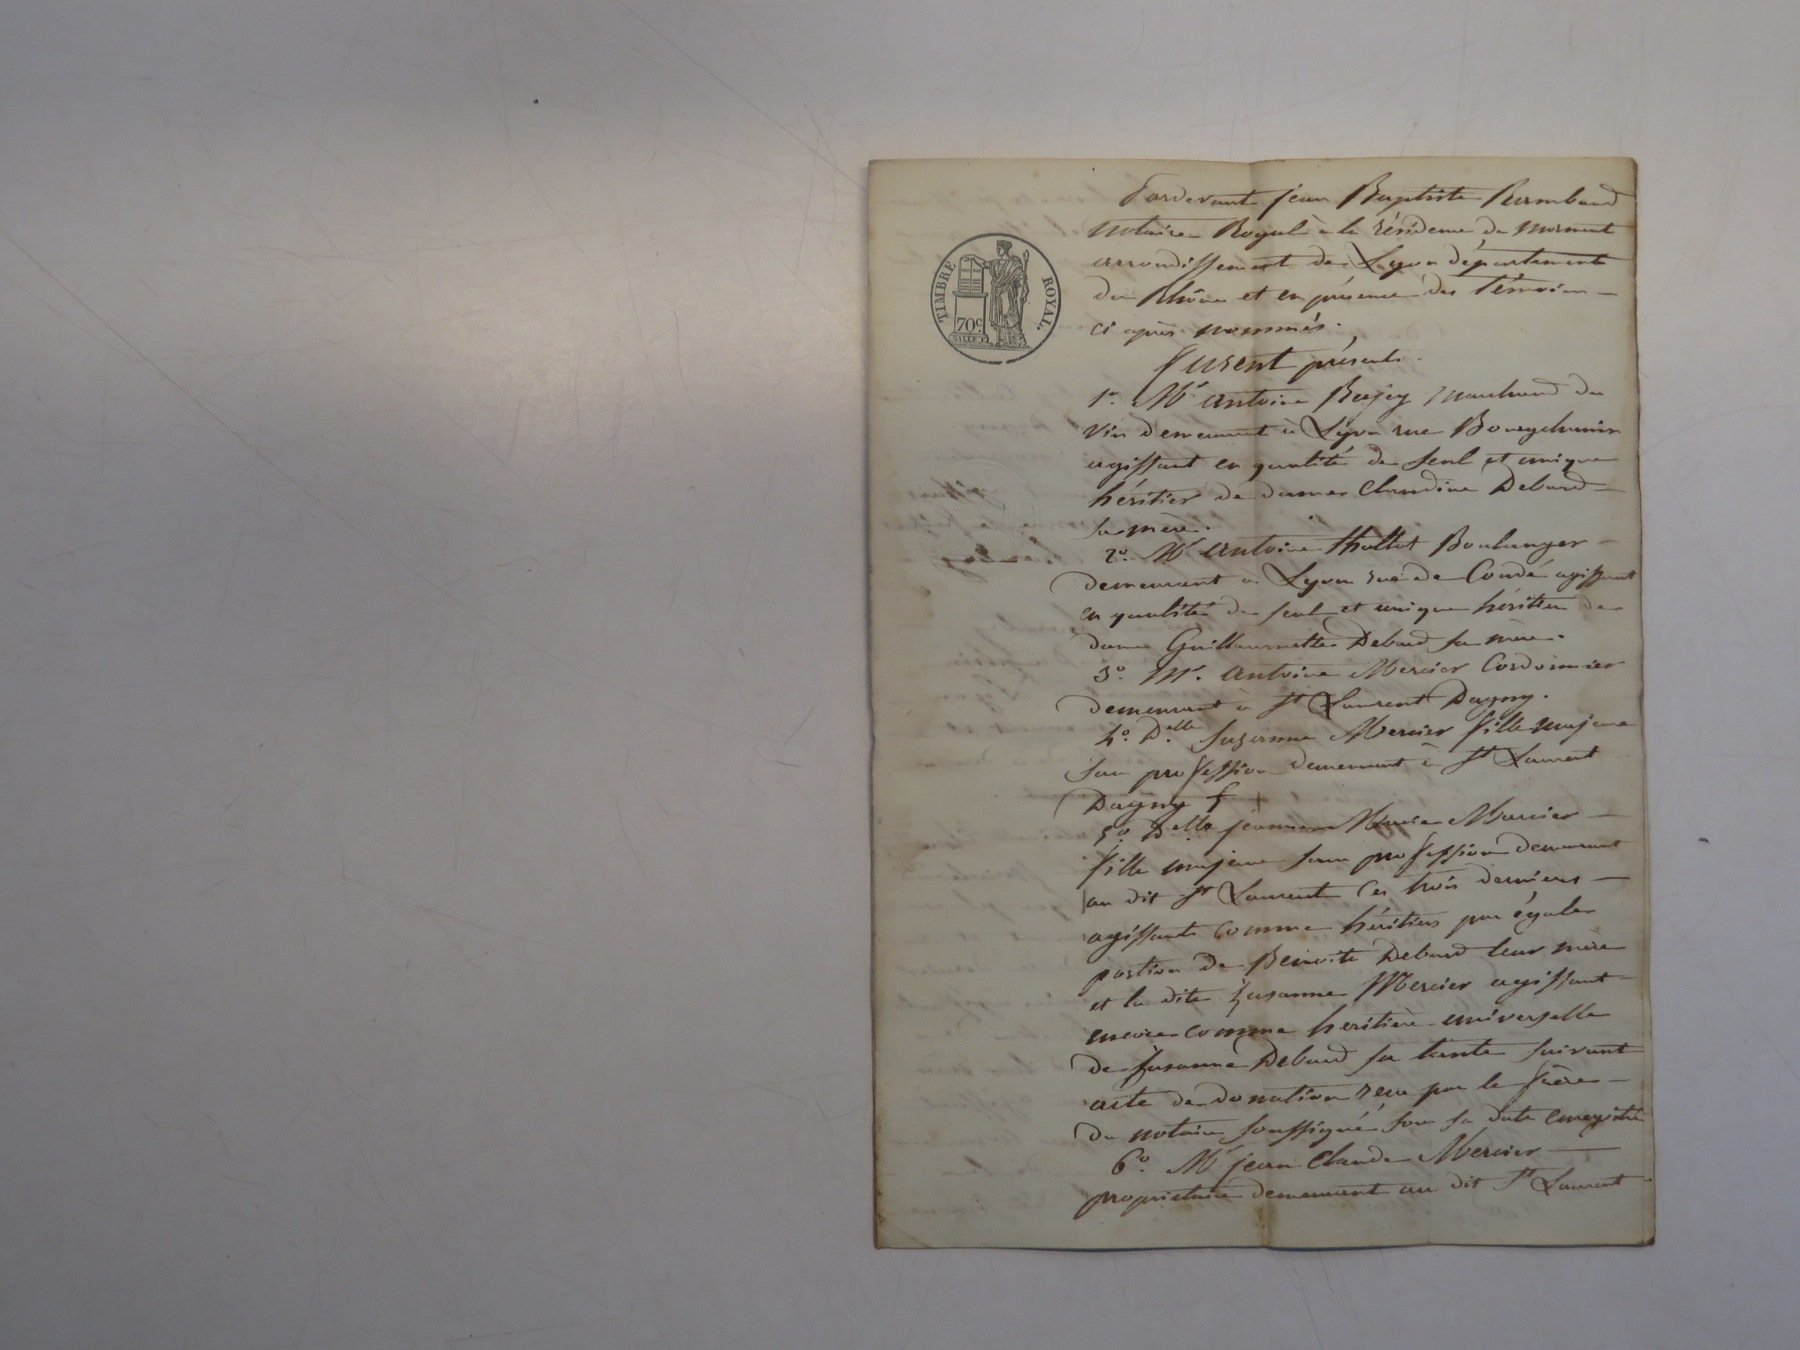 TIMBRE ROYAL.
70c
Pardevant jean Baptiste Rambaud
notaire Royal à la résidence de mornant
arrondissement de Lyon département
du Rhône et en présence des témoins
ci après nommés.
furent présents.
1º. Mr antoine Bajey marchand de
vin demeurant à Lyon rue Bourgchanin
agissant en qualité de seul et unique
héritier de dame Claudine Debard
sa mère.
2º. Mr antoine thollot Boulanger
demeurant à Lyon rue de Condé agissant
en qualité de seul et unique héritier de
dame Guillaumette Debard sa mère.
3º. Mr. antoine Mercier Cordonnier
demeurant à St Laurent Dagny.
4º. Delle Suzanne Mercier fille majeure
sans profession demeurant à St Laurent
Dagny
5º. Delle jeanne Marie Mercier
fille majeure sans profession demeurant
au dit St Laurent Ces trois derniers
agissants comme héritiers par égale
portion de Benoite Debard leur mère
et la dite Suzanne Mercier agissant
encore comme héritière universelle
de Suzanne Debard sa tante suivant
acte de donation reçu par le frère
du notaire soussigné sous sa date enregistré
6º. Mr jean Claude Mercier
propriétaire demeurant au dit St Laurent